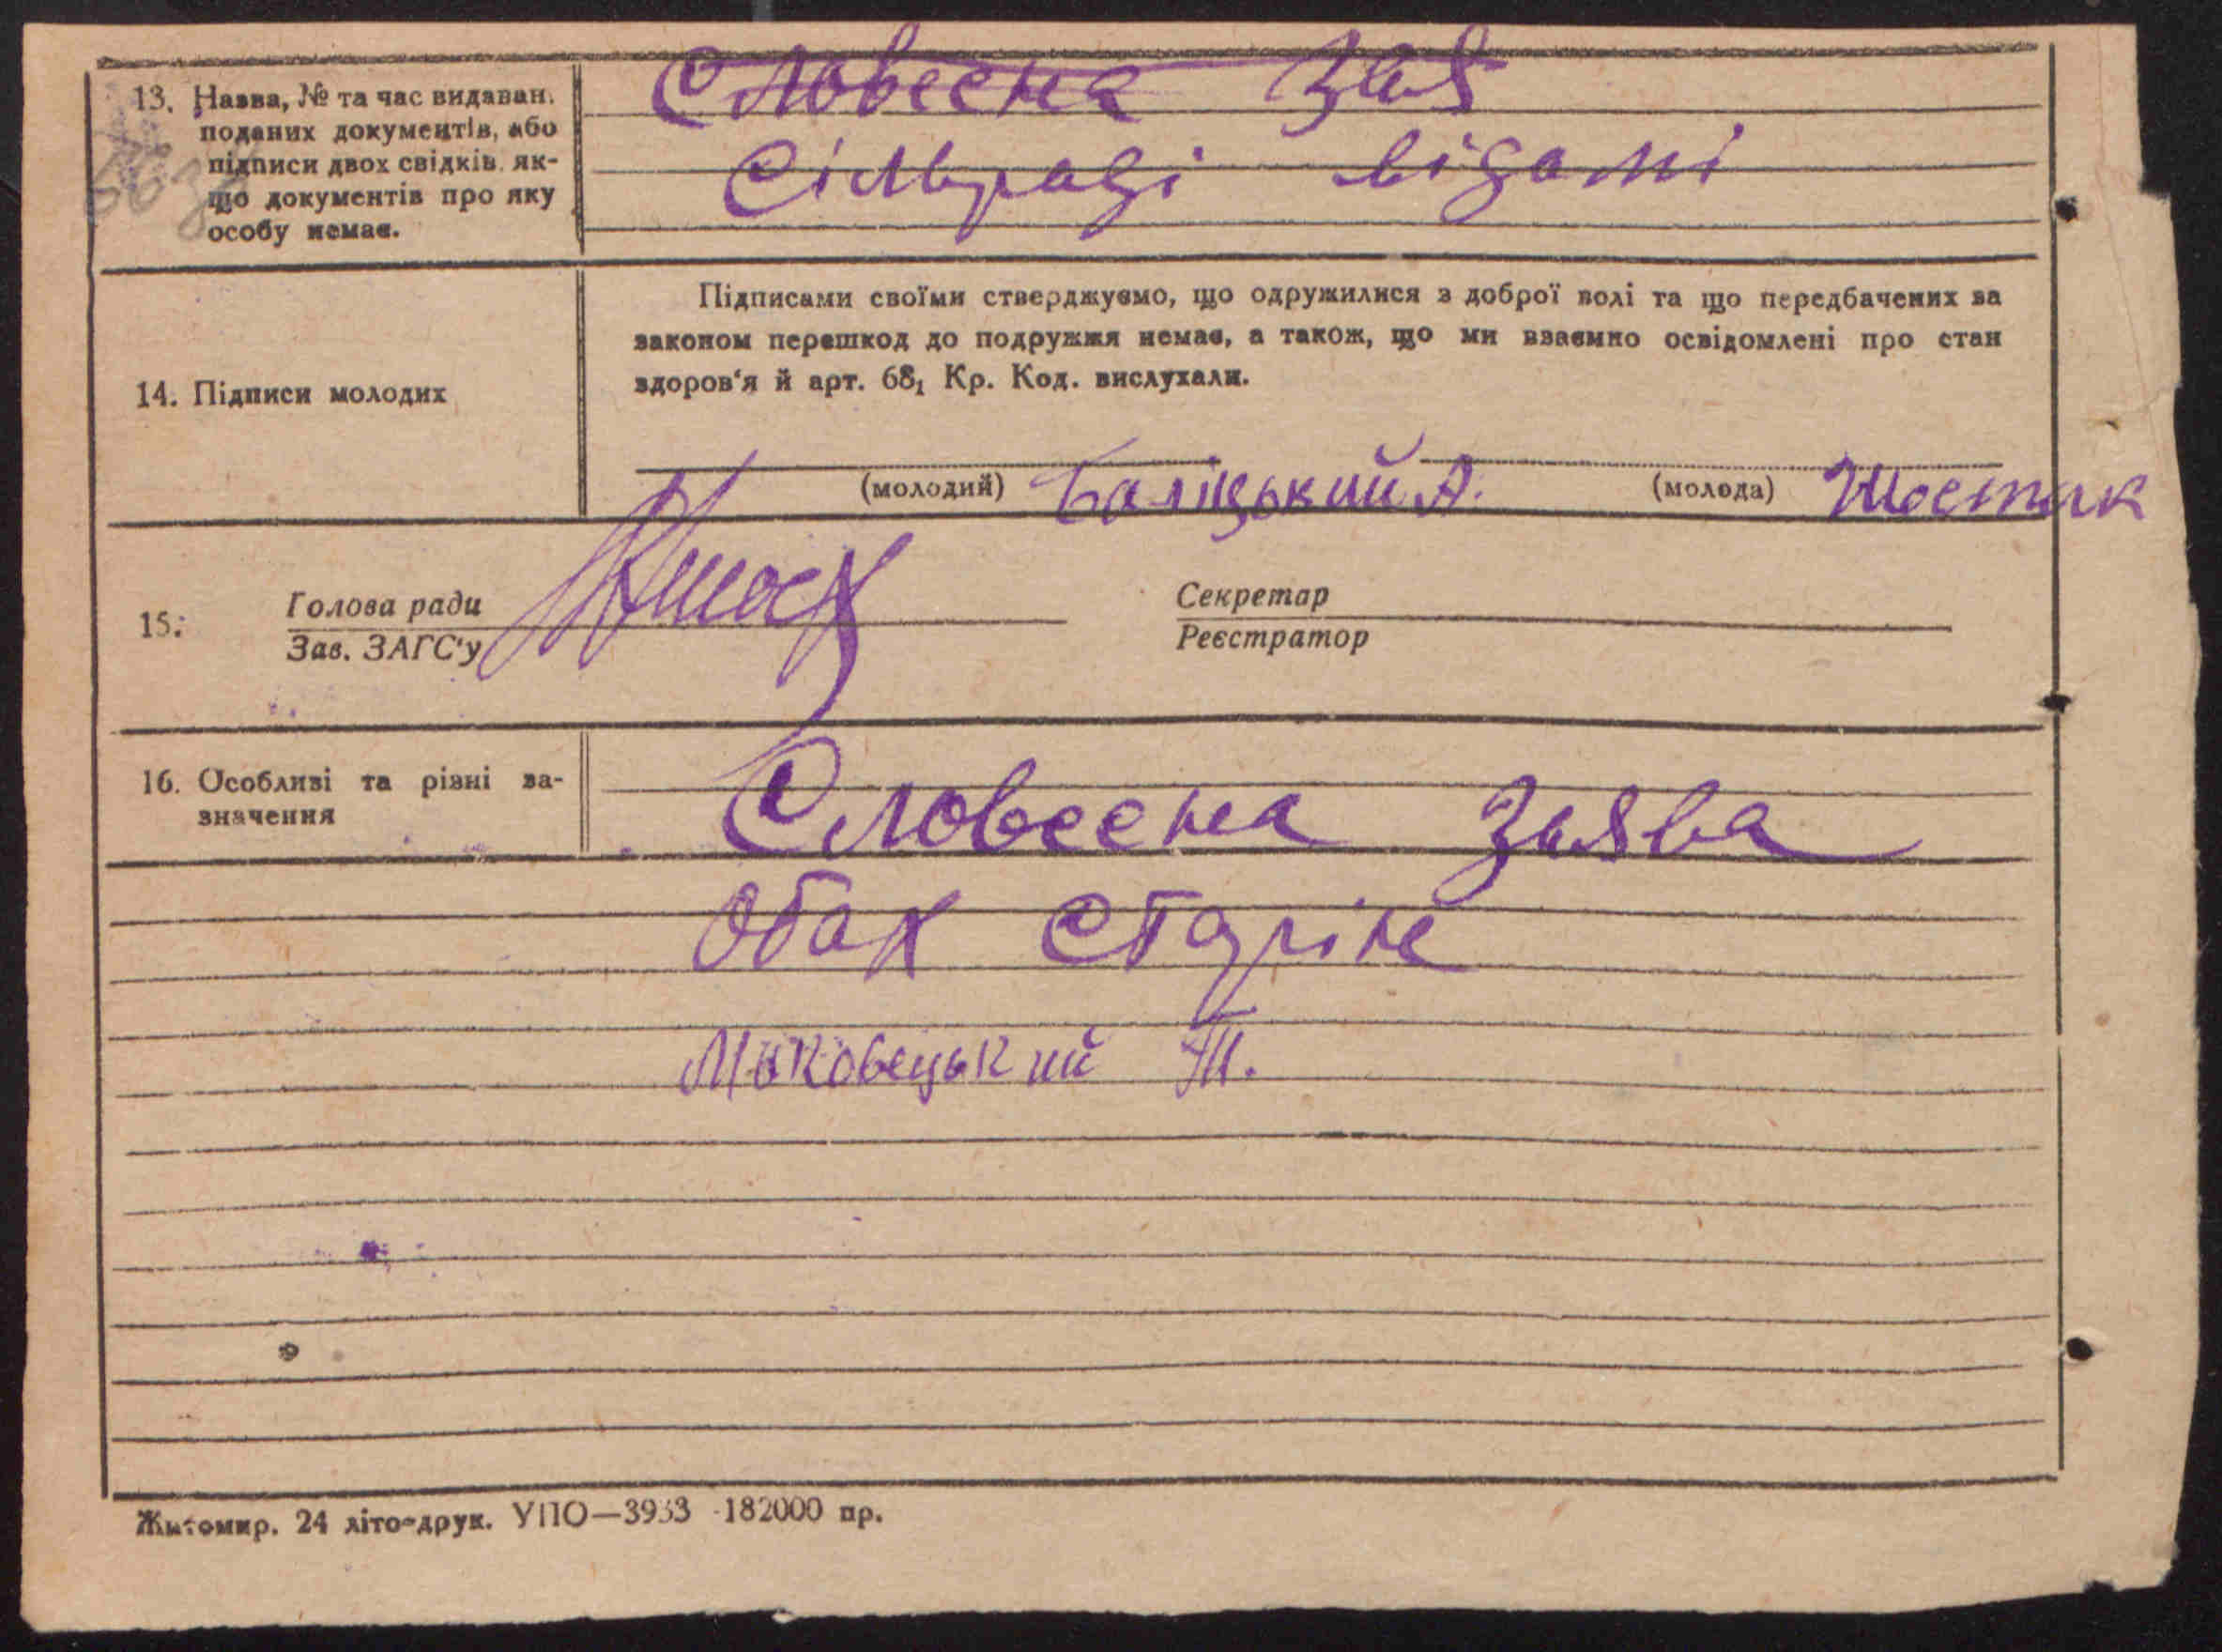 13. Назва, № та час видаван.
поданих документів, або
підписи двох свідків, як-
що документів про яку
особу немає.
Словесна Зая
Сільраді відомі
14. Підписи молодих
Підписами своїми стверджуємо, що одружилися з доброї волі та що передбачених за
законом перешкод до подружжя немає, а також, що ми взаємно освідомлені про стан
здоров'я й арт. 68₁ Кр. Код. вислухали.
(молодий) Баліцький А. (молода) Шостак
15. Голова ради
Зав. ЗАГС'у
Секретар
Реєстратор
16. Особливі та різні за-
значення
Словесна Заява
обах старіне
Маковецький Т.
Житомир. 24 літо-друк. УПО—3933 -182000 пр.